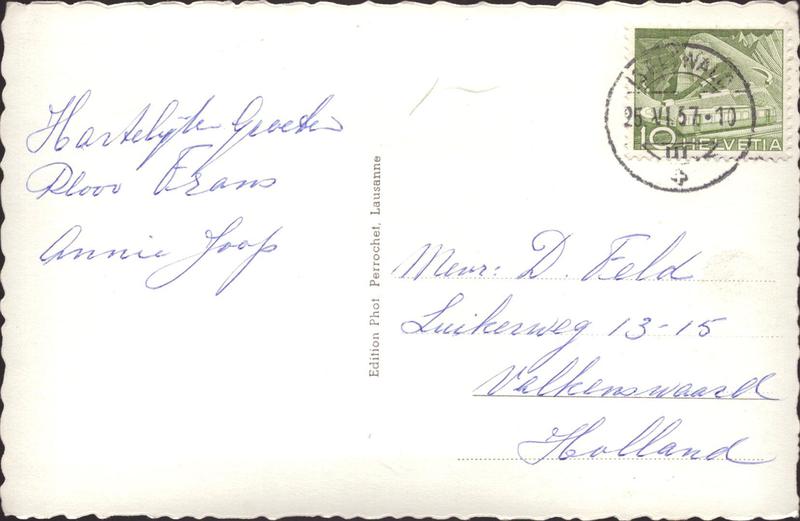 Hartelijke Groeten
Frans
Annie Joop
Edition Phot Perrochet, Lausanne
25.VI.57.-10
10 HELVETIA
Mevr: D. Feld
Luikerweg 13-15
Valkenswaard
Holland